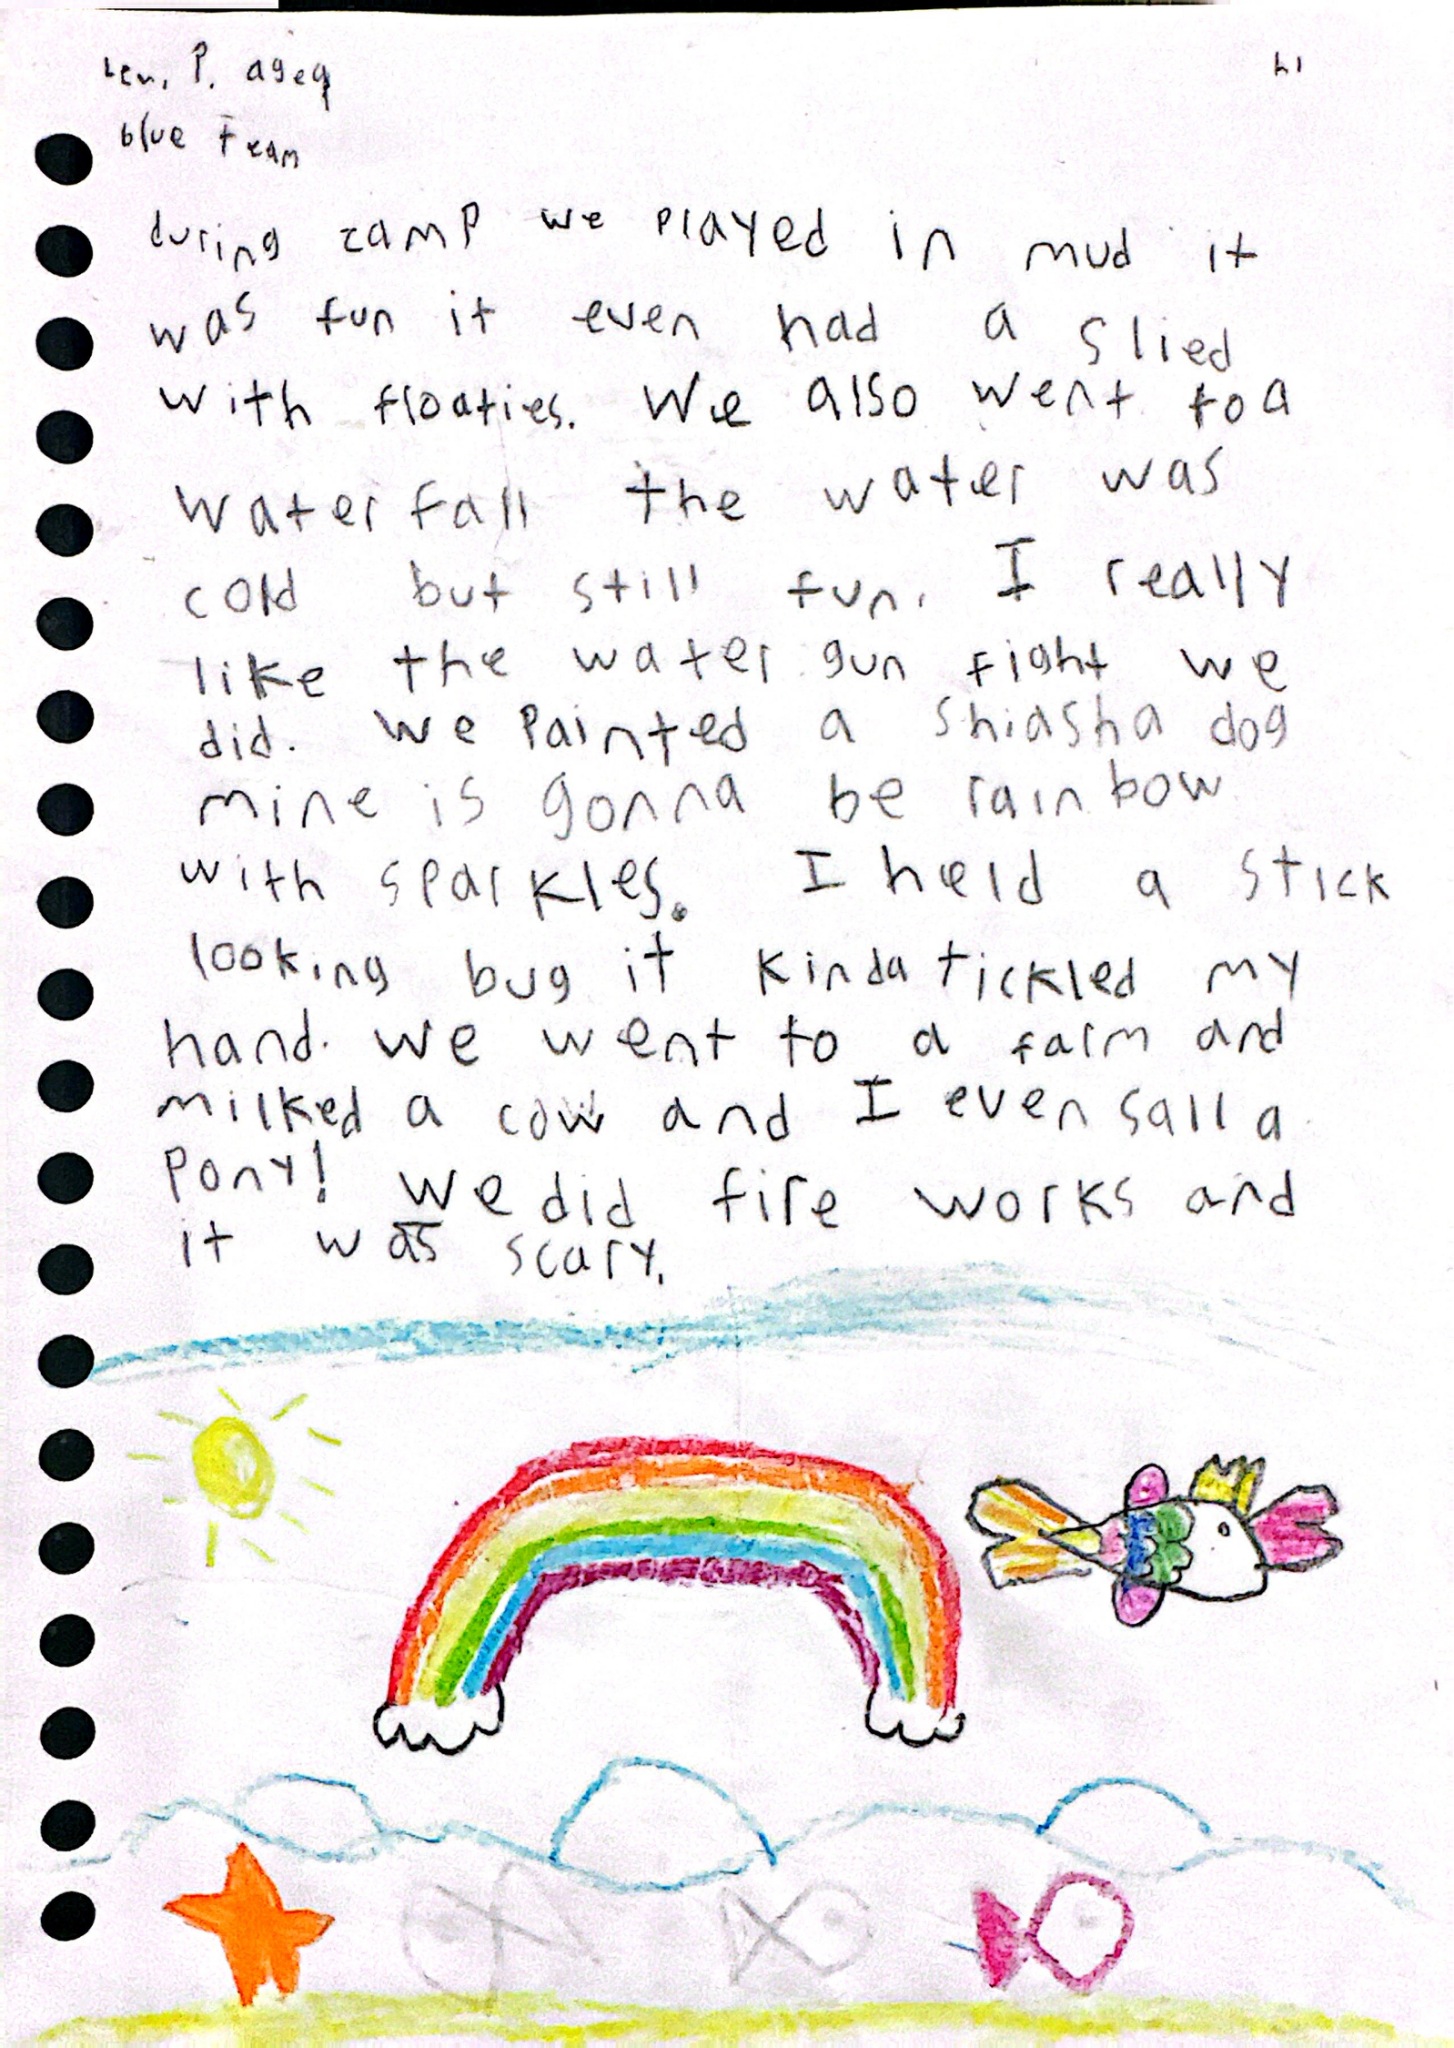 P. age 9
blue team
during camp we played in mud it
was fun it even had a slied
with floaties. We also went to a
waterfall the water was
cold but still fun. I really
like the water gun fight we
did. we painted a shiasha dog
mine is gonna be rainbow
with sparkles. I held a stick
looking bug it kinda tickled my
hand. we went to a farm and
milked a cow and I even sall a
pony! we did fire works and
it was scary.